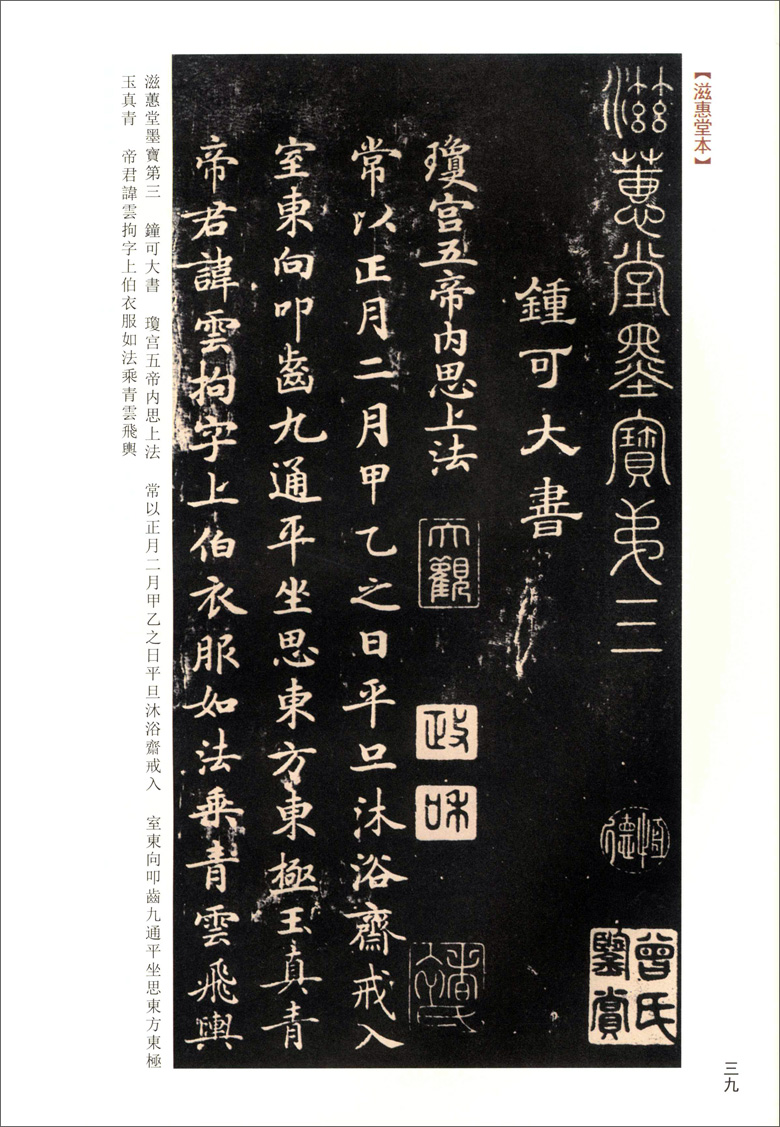 【滋惠堂本】
滋蕙堂墨寶弟三
曾氏鑒賞
鍾可大書
瓊宮五帝内思上法
大觀
政和
常以正月二月甲乙之日平旦沐浴齋戒入
室東向叩齒九通平坐思東方東極玉真青
帝君諱雲拘字上伯衣服如法乘青雲飛輿
滋蕙堂墨寶第三　鐘可大書　瓊宮五帝内思上法　常以正月二月甲乙之日平旦沐浴齋戒入　室東向叩齒九通平坐思東方東極
玉真青　帝君諱雲拘字上伯衣服如法乘青雲飛輿
三九